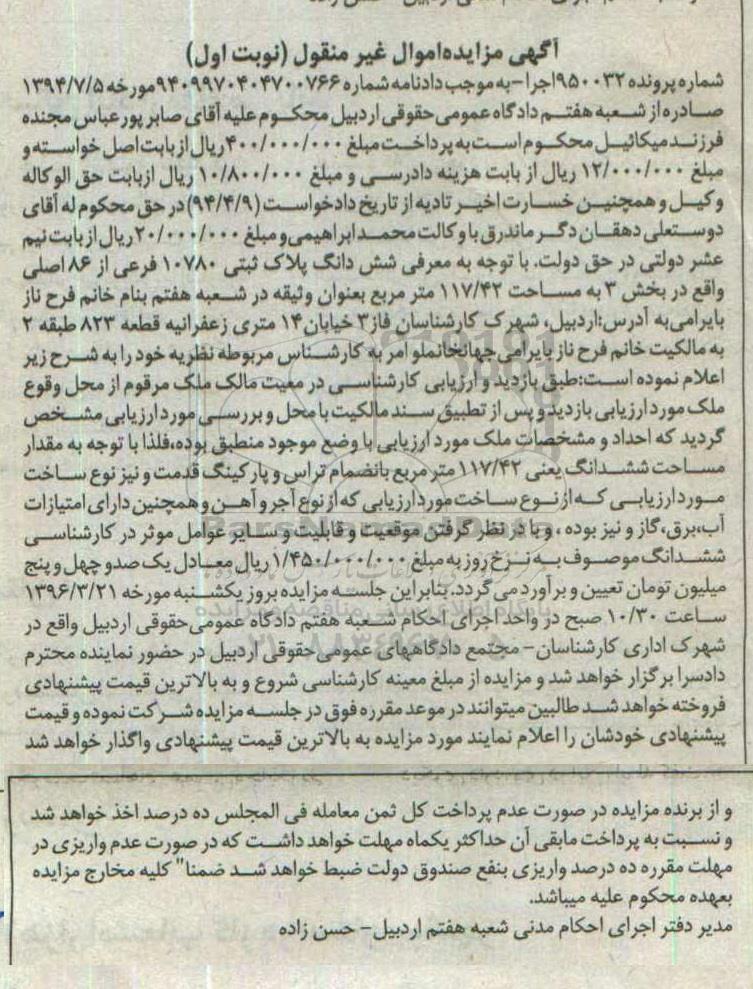 آگهی مزایده‌اموال غیر منقول (نوبت اول)
شماره پرونده ۹۵۰۰۳۲اجرا-به موجب دادنامه شماره ۹۴۰۹۹۷۰۴۰۴۷۰۰۷۶۶مورخه ۱۳۹۴/۷/۵
صادره از شعبه هفتم دادگاه عمومی‌حقوقی اردبیل محکوم علیه آقای صابر پور عباس مجنده
فرزند میکائیل محکوم است به پرداخت مبلغ ۴۰۰/۰۰۰/۰۰۰ریال از بابت اصل خواسته و
مبلغ ۱۲/۰۰۰/۰۰۰ ریال از بابت هزینه دادرسی و مبلغ ۱۰/۸۰۰/۰۰۰ ریال ازبابت حق الوکاله
وکیل و همچنین خسارت اخیر تادیه از تاریخ دادخواست (۹۴/۴/۹) در حق محکوم له آقای
دوستعلی دهقان دگر ماندرق با وکالت محمد ابراهیمی‌و مبلغ ۲۰/۰۰۰/۰۰۰ریال از بابت نیم
عشر دولتی در حق دولت. با توجه به معرفی شش دانگ پلاک ثبتی ۱۰۷۸۰ فرعی از ۸۶ اصلی
واقع در بخش ۳ به مساحت ۱۱۷/۴۲ متر مربع بعنوان وثیقه در شعبه هفتم بنام خانم فرح ناز
بایرامی‌به آدرس:اردبیل، شهرک کارشناسان فاز۳ خیابان۱۴ متری زعفرانیه قطعه ۸۲۳ طبقه ۲
به مالکیت خانم فرح ناز بایرامی‌جهانخانملو امر به کارشناس مربوطه نظریه خود را به شرح زیر
اعلام نموده است:طبق بازدید و ارزیابی کارشناسی در معیت مالک ملک مرقوم از محل وقوع
ملک مورد ارزیابی بازدید و پس از تطبیق سند مالکیت با محل و بررسی مورد ارزیابی مشخص
گردید که احداد و مشخصات ملک مورد ارزیابی با وضع موجود منطبق بوده،فلذا با توجه به مقدار
مساحت ششدانگ یعنی ۱۱۷/۴۲ متر مربع بانضمام تراس و پارکینگ قدمت و نیز نوع ساخت
مورد ارزیابی که از نوع ساخت مورد ارزیابی که از نوع آجر و آهن و همچنین دارای امتیازات
آب،برق،گاز و نیز بوده ، و با در نظر گرفتن موقعیت و قابلیت و سایر عوامل موثر در کارشناسی
ششدانگ موصوف به نرخ روز به مبلغ ۱/۴۵۰/۰۰۰/۰۰۰ ریال معادل یک صدو چهل و پنج
میلیون تومان تعیین و برآورد می‌گردد. بنابراین جلسه مزایده بروز یکشنبه مورخه ۱۳۹۶/۳/۲۱
ساعت ۱۰/۳۰ صبح در واحد اجرای احکام شعبه هفتم دادگاه عمومی‌حقوقی اردبیل واقع در
شهرک اداری کارشناسان- مجتمع دادگاههای عمومی‌حقوقی اردبیل در حضور نماینده محترم
دادسرا برگزار خواهد شد و مزایده از مبلغ معینه کارشناسی شروع و به بالاترین قیمت پیشنهادی
فروخته خواهد شد طالبین میتوانند در موعد مقرره فوق در جلسه مزایده شرکت نموده و قیمت
پیشنهادی خودشان را اعلام نمایند مورد مزایده به بالاترین قیمت پیشنهادی واگذار خواهد شد
و از برنده مزایده در صورت عدم پرداخت کل ثمن معامله فی المجلس ده درصد اخذ خواهد شد
و نسبت به پرداخت مابقی آن حداکثر یکماه مهلت خواهد داشت که در صورت عدم واریزی در
مهلت مقرره ده درصد واریزی بنفع صندوق دولت ضبط خواهد شد ضمنا" کلیه مخارج مزایده
بعهده محکوم علیه میباشد.
مدیر دفتر اجرای احکام مدنی شعبه هفتم اردبیل- حسن زاده